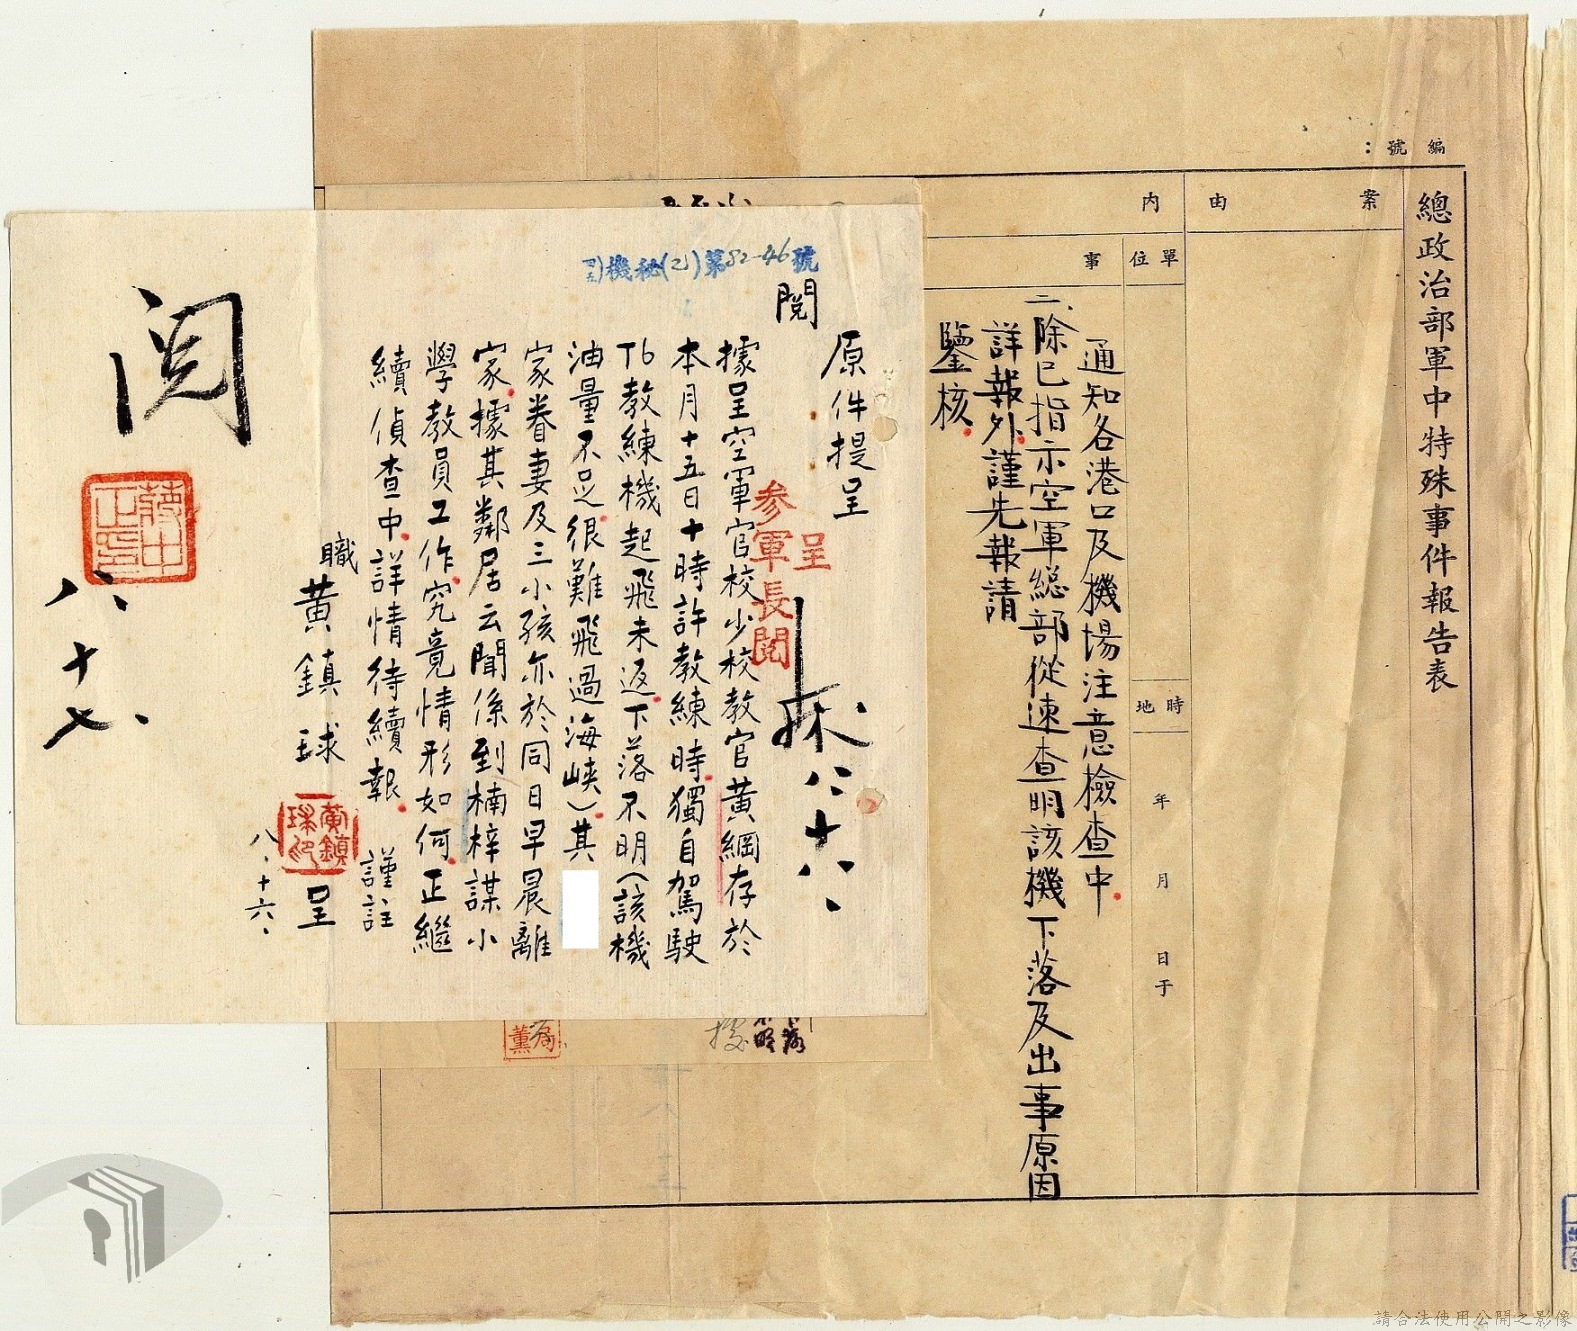 編號：
總政治部軍中特殊事件報告表
案由
內
單位
事
時地
年月日于
通知各港口及機場注意檢查中
二、除已指示空軍總部從速查明該機下落及出事原因
詳報外謹先報請
鑒核
機秘(乙)第82-46號
閱
原件提呈
呈
參軍長閱
八、十六、
據呈空軍官校少校教官黃綱存於
本月十五日十時許教練時獨自駕駛
T6教練機起飛未返下落不明(該機
油量不足很難飛過海峽)其
家眷妻及三小孩亦於同日早晨離
家據其鄰居云聞係到楠梓謀小
學教員工作究竟情形如何正繼
續偵查中詳情待續報 謹註
職黃鎮球呈
黃鎮球印
八、十六、
閱
蔣中正印
八、十七、
請合法使用公開之影像